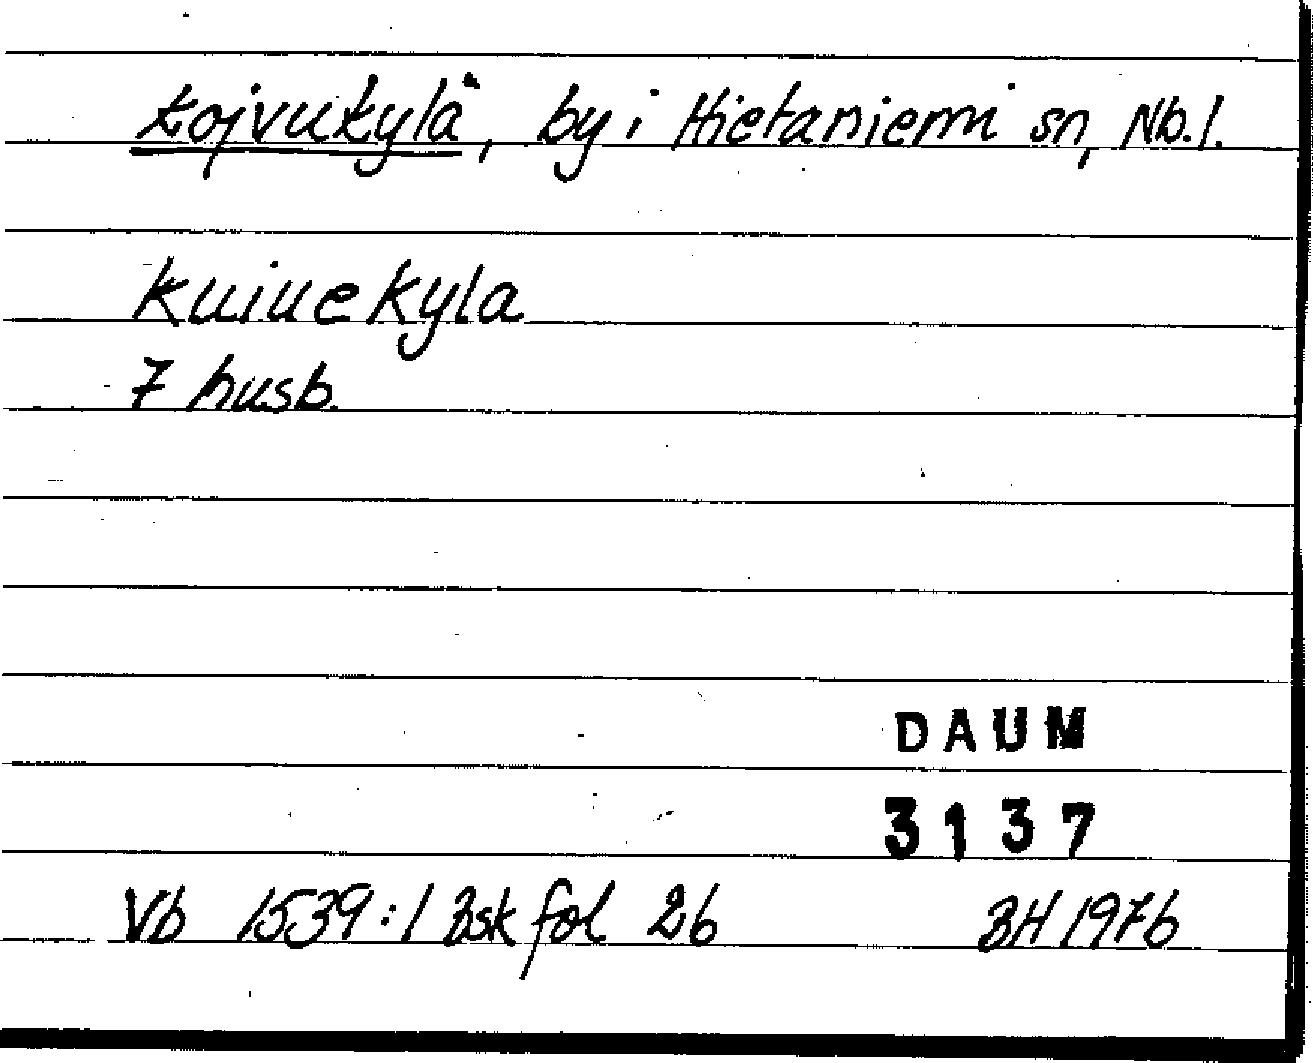 kojvukylä, by i Hietaniemi sn, Nb.l.
Kuiuekyla
7 husb.
DAUM
3137
Vb 1539:1 Bsk fol 26 BH 1976